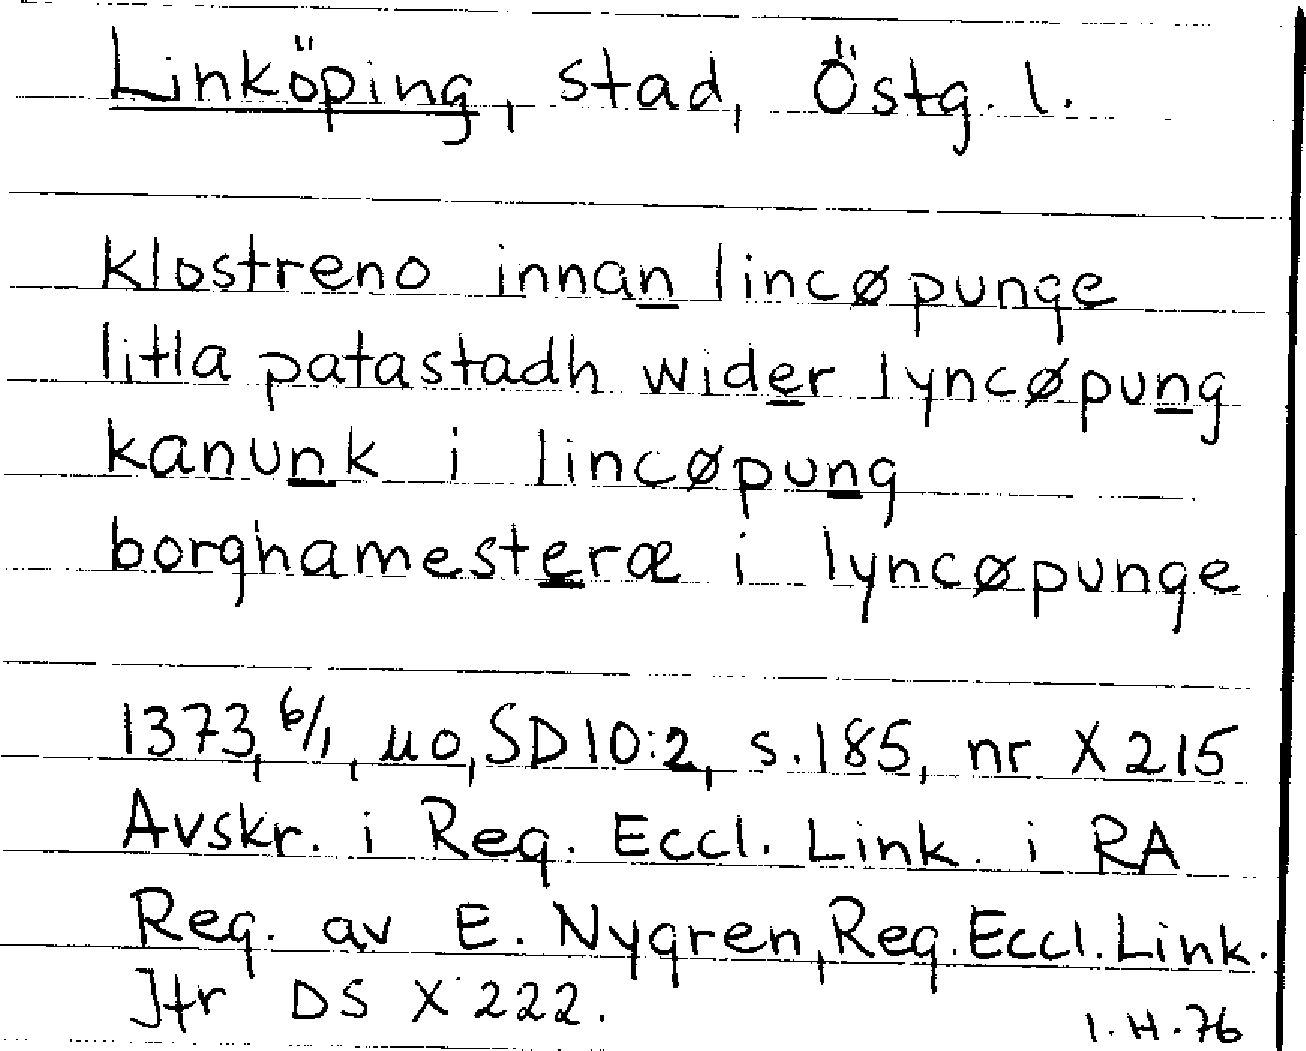 Linköping, stad, Östg. l.
klostreno innan lincøpunge
litla patastadh wider lyncøpung
kanunk i lincøpung
borghamesteræ i lyncøpunge
1373, 6/1, uo, SD 10:2, s. 185, nr X 215
Avskr. i Reg. Eccl. Link. i RA
Reg. av E. Nygren, Reg. Eccl. Link.
Jfr DS X 222.
I. H. 76